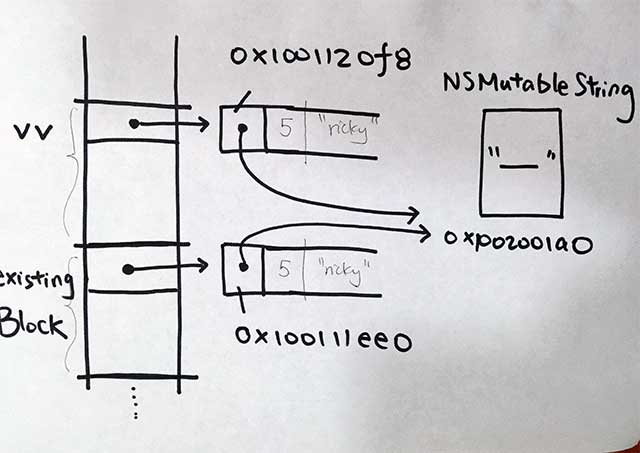 0x1001120f8
NSMutableString
vv
5 "ricky"
"__"
0xp02001a0
existing
Block
5 "ricky"
0x100111ee0